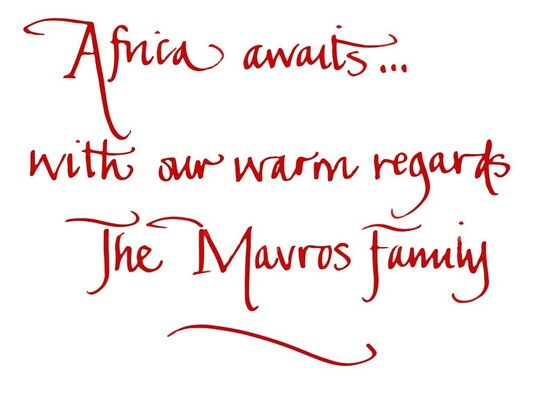 Africa awaits...
with our warm regards
The Mavros Family